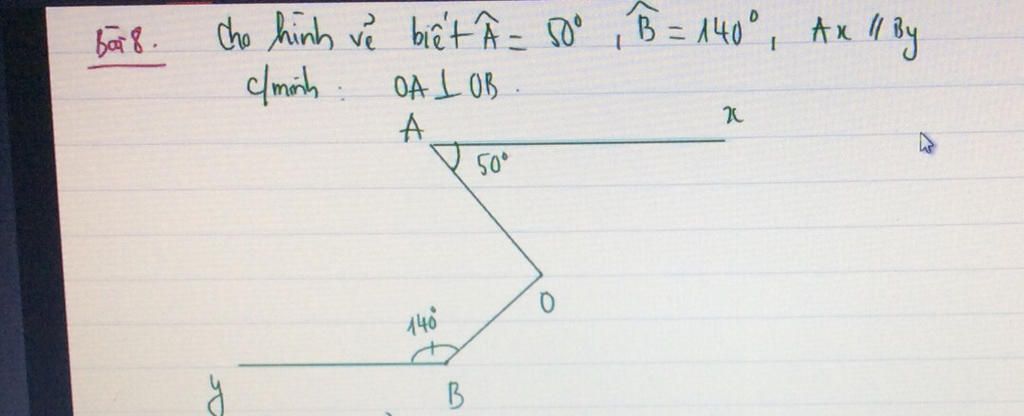 Bài 8. Cho hình vẽ biết Â = 50°, B̂ = 140°, Ax // By
c/minh: OA ⊥ OB.
A x
50°
O
140°
y B